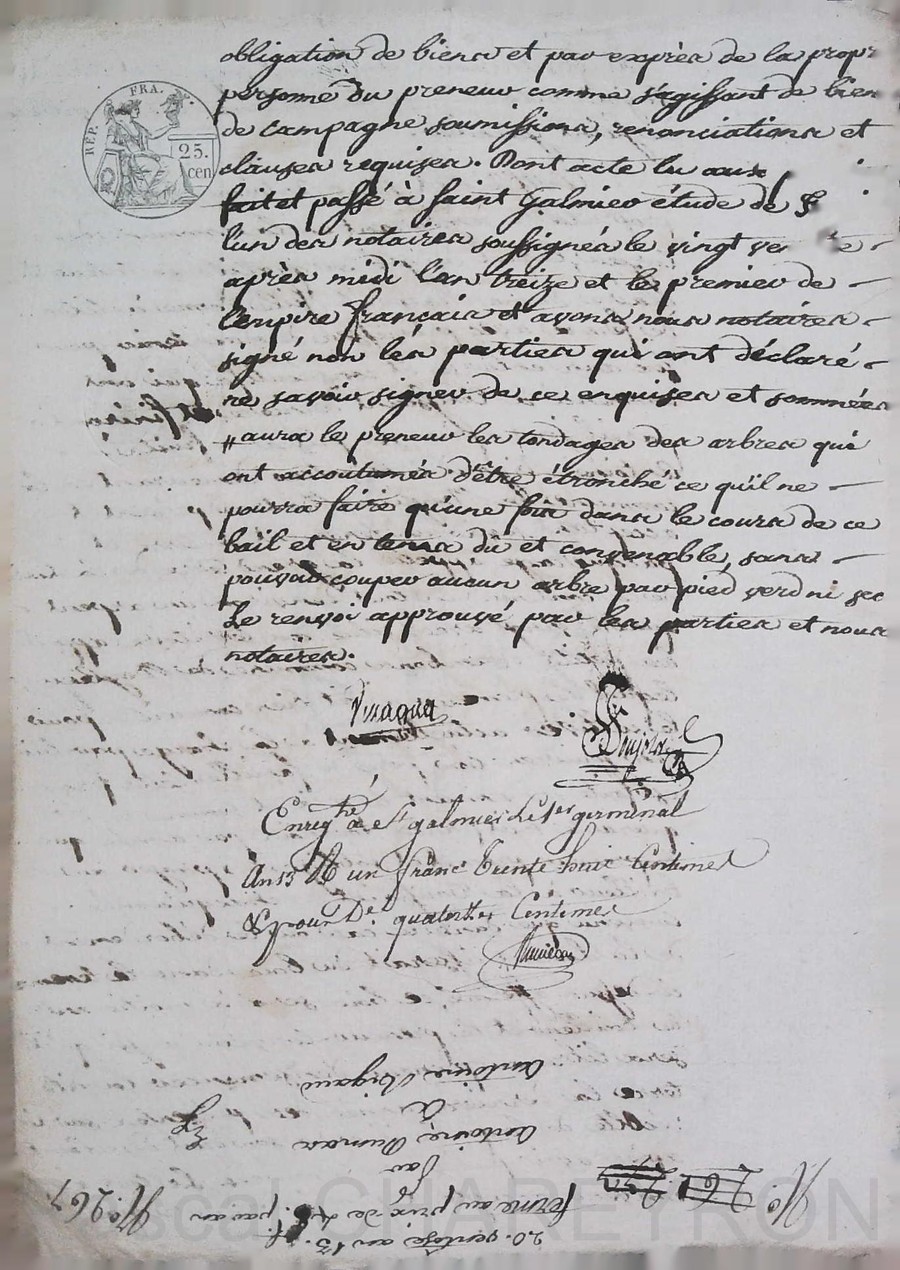 REP. FRA.
25.
cen
obligation de biens et par exprès de la propr
personne du preneur comme s'agissant de bien
de campagne soumissions, renonciations et
clauses requises. Dont acte lu aux
fait et passé à Saint Galmier étude de
l'un des notaires soussignés le vingt ve
après midi l'an treize et le premier de
l'empire français et avons nous notaires
signé non les parties qui ont déclaré
ne savoir signer de ce enquises et sommées
aura le preneur les tondages des arbres qui
ont accoutumés d'être étronché ce qu'il ne
pourra faire qu'une fois dans le cours de ce
bail et en tems dû et convenable, sans
pouvoir couper aucun arbre par pied verd ni sec
Le renvoi approuvé par les parties et nous
notaires.
Enregtré à St galmier Le 1er germinal
An 13 R un franc trente huit Centimes
& pour De quatorze Centimes
No. 267
20. ventose an 13.
ferme au prix de 48. f. par an
par
antoine Dumas
à
antoine Rigaud
No. 267
Pascal CHAREYRON